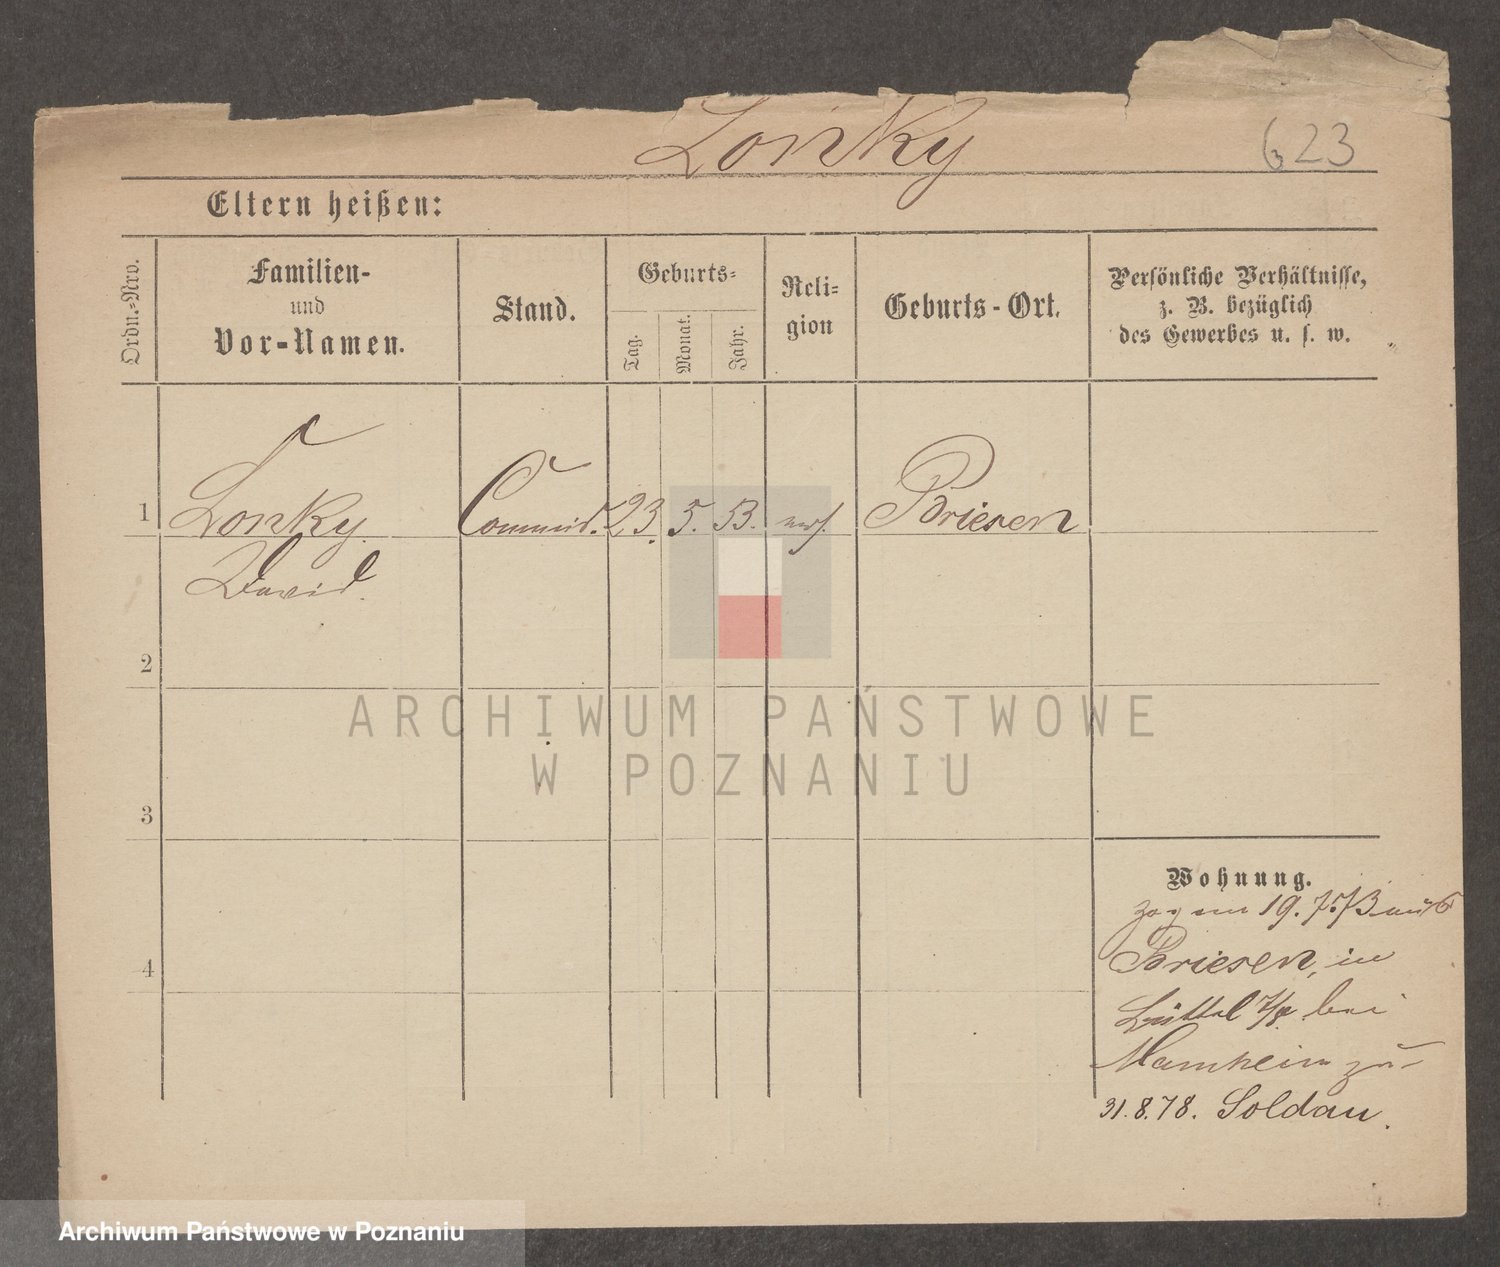 Lonky
623
Eltern heißen:
Ordn.-Nro.
Familien-
und
Vor-Namen.
Stand.
Geburts-
Tag.
Monat.
Jahr.
Reli-
gion
Geburts-Ort.
Persönliche Verhältnisse,
z. B. bezüglich
des Gewerbes u. s. w.
1
Lonky
Commis. 23. 5. 53. mos. Briesen
David.
2
3
4
Wohnung.
zog am 19. 7. 73 aus
Briesen, in
bei
Mannheim zu
31. 8. 78. Soldau.
ARCHIWUM PAŃSTWOWE
W POZNANIU
Archiwum Państwowe w Poznaniu